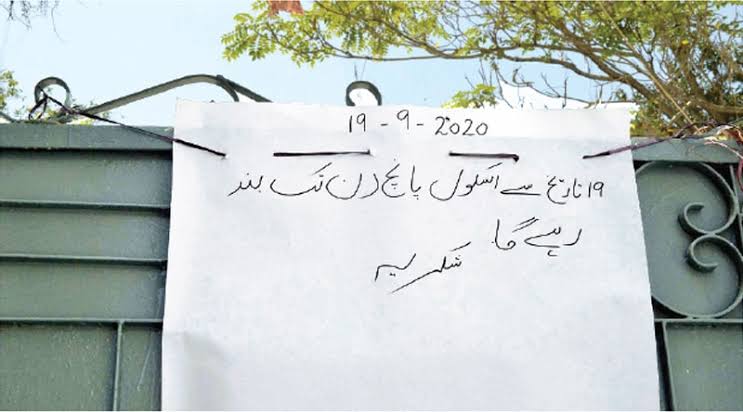 19-9-2020
19 تاریخ سے اسکول پانچ دن تک بند
رہے گا۔
شکریہ